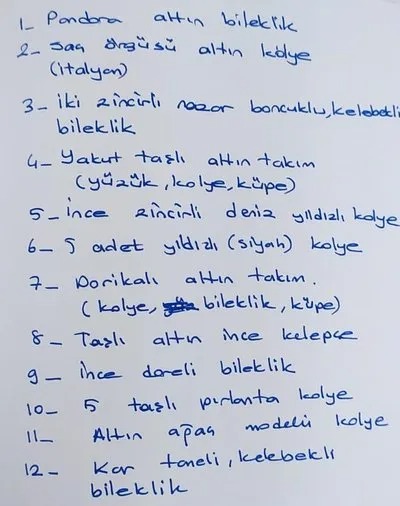 1_ Pandora altın bileklik
2_ Saç örgüsü altın kolye
(italyan)
3_ İki zincirli nazar boncuklu, kelebekli
bileklik
4_ Yakut taşlı altın takım
(yüzük, kolye, küpe)
5_ İnce zincirli deniz yıldızlı kolye
6_ 5 adet yıldızlı (siyah) kolye
7_ Dorikalı altın takım.
(kolye, bileklik, küpe)
8_ Taşlı altın ince kelepçe
9_ İnce doreli bileklik
10_ 5 taşlı pırlanta kolye
11_ Altın ağaç modeli kolye
12_ Kar taneli, kelebekli
bileklik